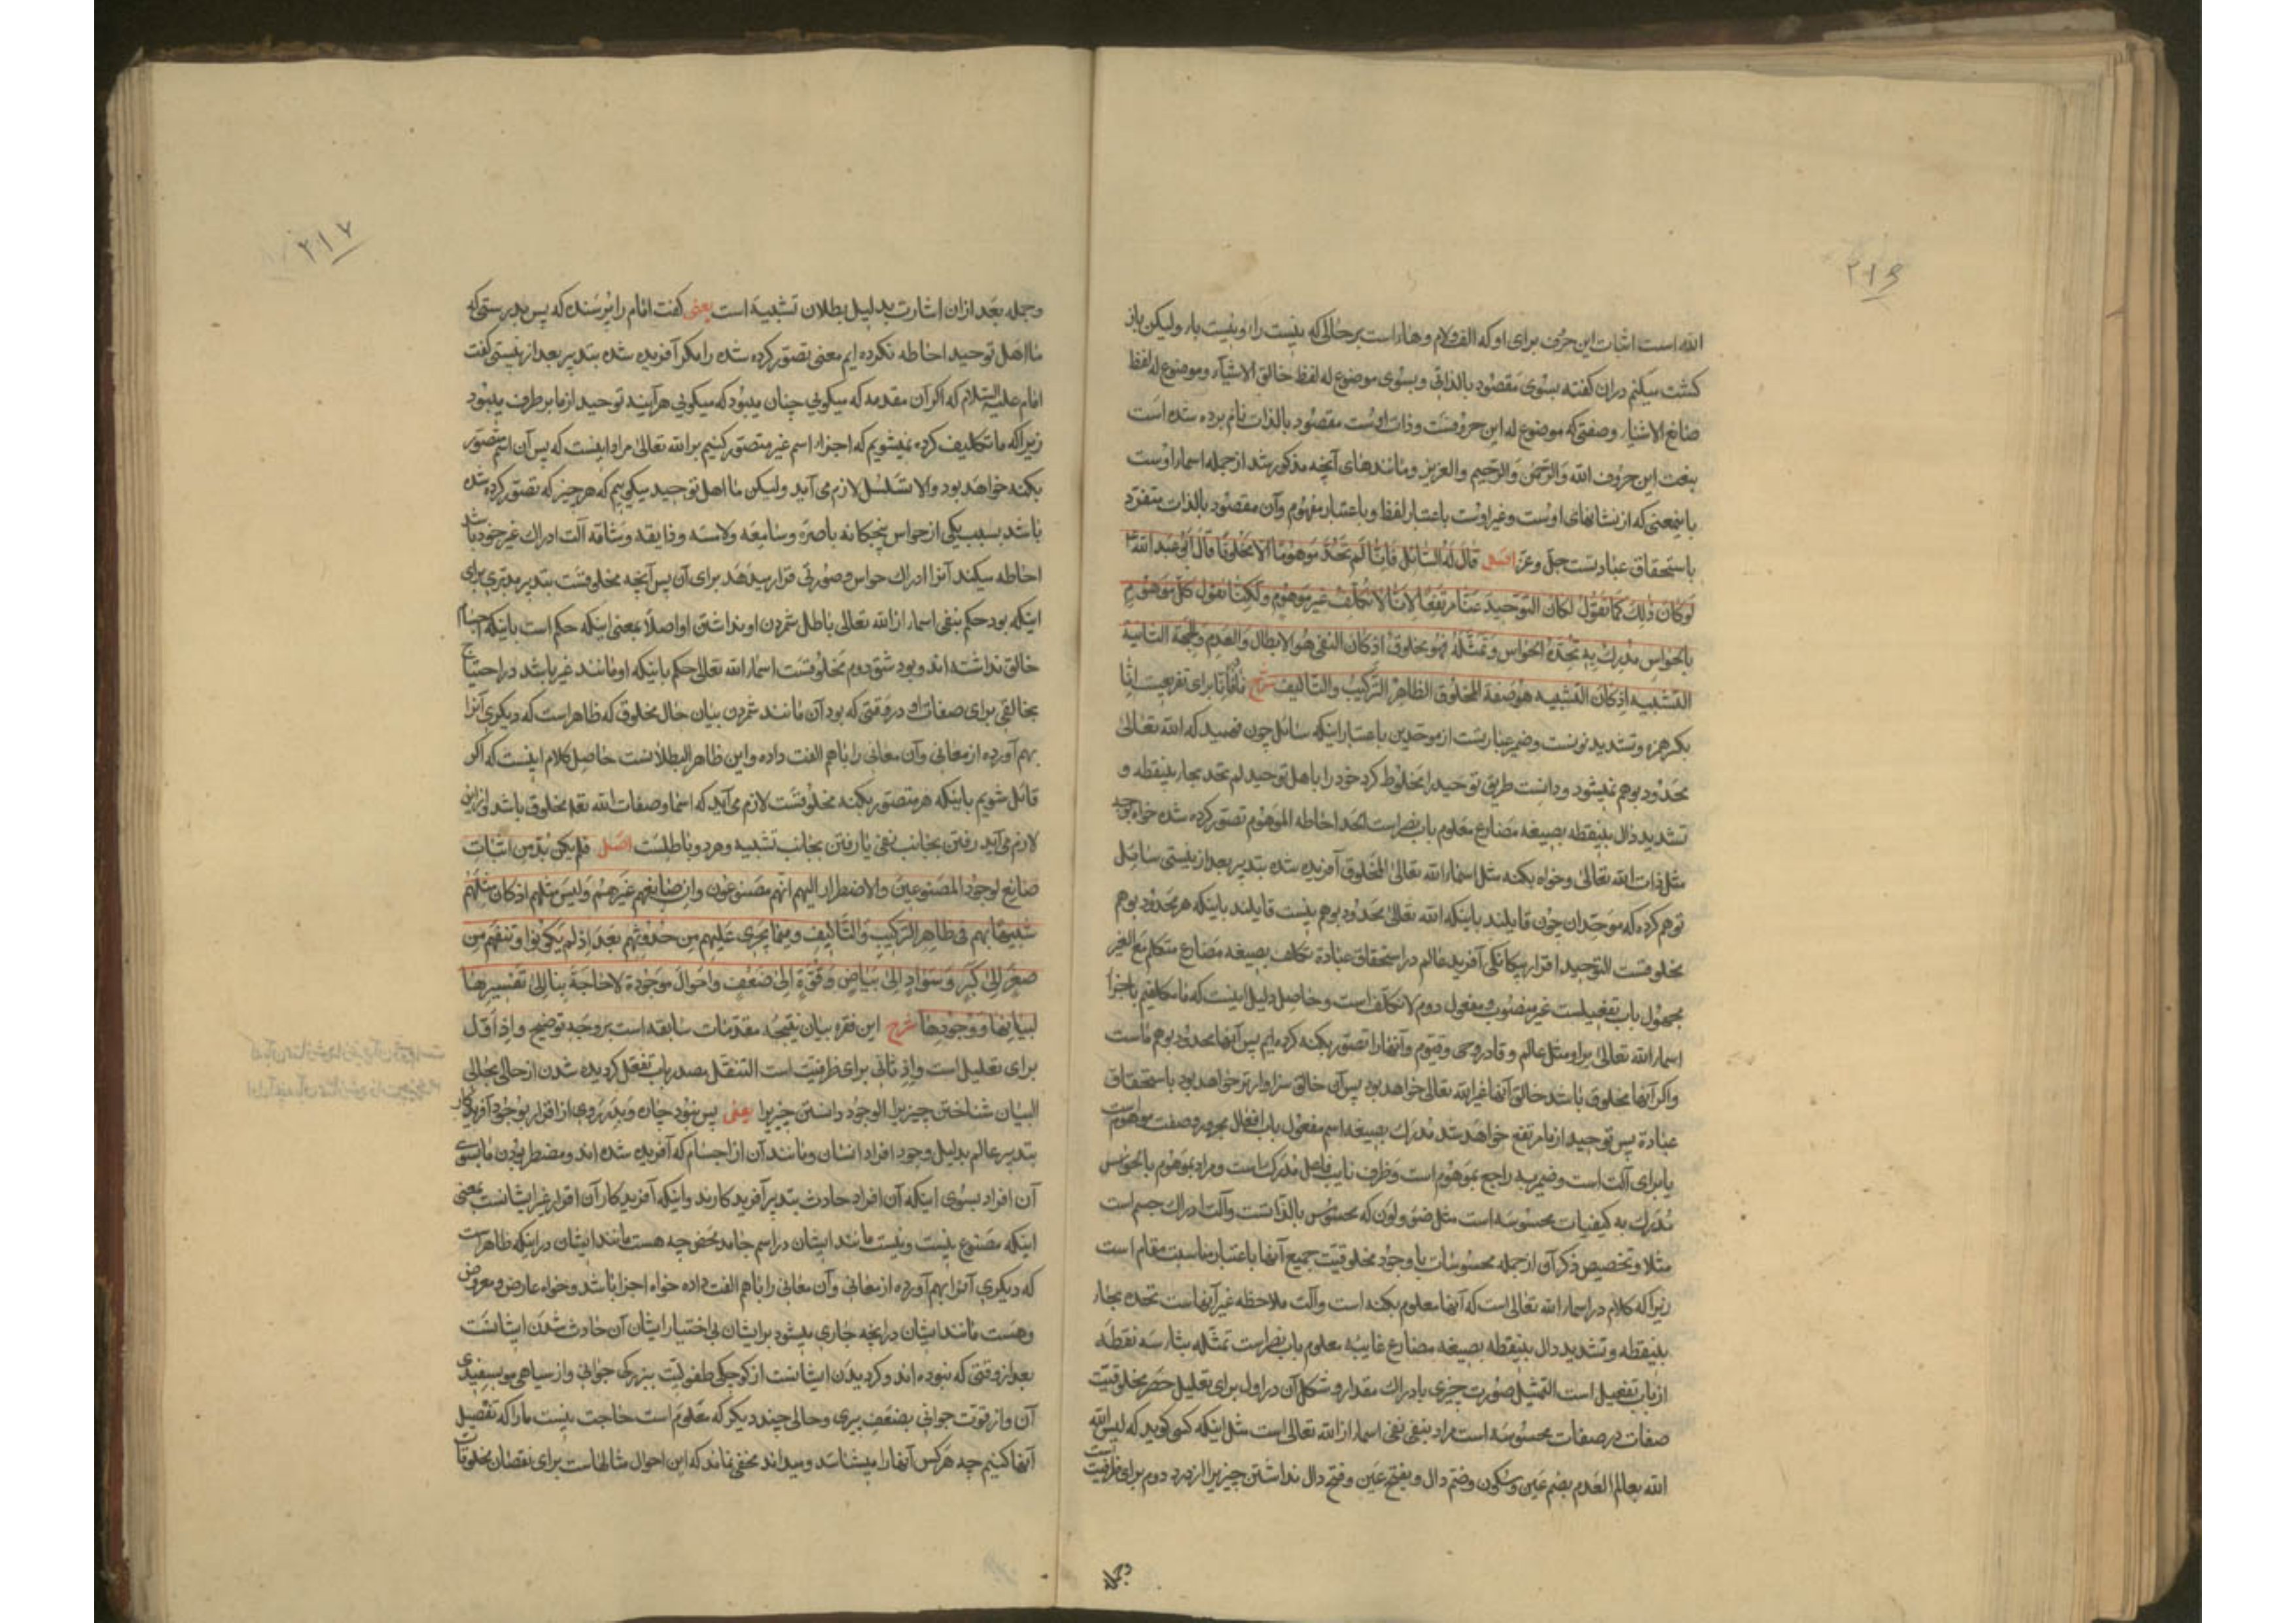 ۲۱۶
الله است اثبات این حرف برای او که الف و لام و هاء است بر حالی که نیست راء و نیست باء ولیکن باز
کشت میکنم دران کفته بسوی مقصود بالذاتی و بسوی موضوع له لفظ خالق الاشیاء و موضوع له لفظ
صانع الاشیاء و صفتی که موضوع له این حروفست و ذات اوست مقصود بالذات نام برده شده است
بنعت این حروف الله و الرحمن و الرحیم و العزیز و مانندهای آنچه مذکور شد از جمله اسماء اوست
باینمعنی که از نشانهای اوست و غیر اوست باعتبار لفظ و باعتبار مفهوم و آن مقصود بالذات متفرد
باستحقاق عبادتست جل و عز اصل قال له السائل فانا لم نحد موهوما الا مخلوقا قال ابو عبد الله ع
لو کان ذلک کما تقول لکان التوحید عنا مرتفعا لانا لا نکلف غیر موهوم ولکنا نقول کل موهوم
بالحواس مدرک به تحده الحواس و تمثله فهو مخلوق اذ کان النفی هو الابطال و العدم و الجهة الثانیة
التشبیه اذ کان التشبیه هو صفة المخلوق الظاهر الترکیب و التالیف شرح فا فانا برای تفریعست انا
بکسر همزه و تشدید نونست و ضمیر عبارتست از موحدین باعتبار اینکه سائل چون فهمید که الله تعالی
محدود بوهم نمیشود و دانست طریق توحید را مخلوط کرد خود را باهل توحید لم نحد بحاء بینقطه و
تشدید دال بینقطه بصیغه مضارع معلوم باب نصر است الحد احاطه الموهوم تصور کرده شده خواه بوجه
مثل ذات الله تعالی و خواه بکنه مثل اسماء الله تعالی المخلوق آفریده شده بتدبیر بعد از نیستی سائل
توهم کرده که موحدان چون قایلند باینکه الله تعالی محدود بوهم نیست قایلند باینکه هر محدود بوهم
مخلوقست التوحید اقرار بیکانکی آفریدۀ عالم در استحقاق عبادة نکلف بصیغه مضارع متکلم مع الغیر
مجهول باب تفعیلست غیر منصوب و مفعول دوم لا نکلف است و حاصل دلیل اینست که ما مکلفیم باجرا
اسماء الله تعالی براو مثل عالم و قادر و حی و قیوم و آنها را تصور بکنه کرده ایم پس آنها محدود بوهم ماست
و اکر آنها مخلوق باشد خالق آنها غیر الله تعالی خواهد بود پس آن خالق سزاوارتر خواهد بود باستحقاق
عبادة پس توحید از ما مرتفع خواهد شد مدرک بصیغه اسم مفعول باب افعال مجرور و صفت موهوم است
با برای آلت است و ضمیر به راجع بموهوم است و ظرف نایب فاعل مدرک است و مراد بموهوم بالحواس
مدرک به کیفیات محسوسه است مثل ضوء و لون که محسوس بالذاتست و آلت ادراک جسم است
مثلا و تخصیص ذکر آن از جمله محسوسات با وجود مخلوقیت جمیع آنها باعتبار مناسبت مقام است
زیرا که کلام در اسماء الله تعالی است که آنها معلوم بکنه است و آلت ملاحظه غیر آنهاست تحده بحاء
بینقطه و تشدید دال بینقطه بصیغه مضارع غایبه معلوم باب نصر است تمثله بثاء سه نقطه
از باب تفعیل است التمثیل صورت چیزی بادراک مقدار و شکل آن در اول برای تعلیل حصر مخلوقیت
صفات در صفات محسوسه است مراد بنفی نفی اسماء از الله تعالی است مثل اینکه کسی کوید که لیس الله
الله بعالم العدم بضم عین و سکون و ضم دال و بفتح عین و فتح دال نداشتن چیزیرا اذ در دوم برای ظرفیت است
وجمله
۲۱۷
وجمله بعد ازان اشارت بدلیل بطلان تشبیه است یعنی کفت امام را پرسنده که پس بدرستی که
ما اهل توحید احاطه نکرده ایم معنی تصور کرده شده را مکر آفریده شده بتدبیر بعد از نیستی کفت
امام علیه السلام که اکر آن مقدمه که میکویی چنان میبود که میکویی هرآینه توحید از ما برطرف میبود
زیرا که ما تکلیف کرده نمیشویم که اجراء اسم غیر متصور کنیم بر الله تعالی مراد اینست که پس آن اسم متصور
بکنه خواهد بود و الا تسلسل لازم می آید ولیکن ما اهل توحید میکوییم که هر چیز که تصور کرده شده
باشد بسبب یکی از حواس پنجکانه باصره و سامعه و لامسه و ذایقه و شامه آلت ادراک غیر خود باشد
احاطه میکند آنرا ادراک حواس و صورتی قرار میدهد برای آن پس آنچه مخلوقست بتدبیر مدبری برای
اینکه بود حکم بنفی اسماء از الله تعالی باطل شمردن او و نداشتن او اصلا بمعنی اینکه حکم است باینکه اجسام
خالق نداشته اند و بود شق دوم مخلوقست اسماء الله تعالی حکم باینکه او مانند غیر باشد در احتیاج
بخالقی برای صفات او در وقتی که بود آن مانند شمردن بیان حال مخلوق که ظاهر است که دیکری آنرا
بهم آورده از معانی و آن معانی را باهم الفت داده و این ظاهر البطلانست حاصل کلام اینست که اکر
قائل شویم باینکه هر متصور بکنه مخلوقست لازم می آید که اسما و صفات الله تعه مخلوق باشد و ازین
لازم می آید رفتن بجانب نفی یا رفتن بجانب تشبیه و هر دو باطلست اصل فلم یکن بد من اثبات
صانع لوجود المصنوعین و الاضطرار الیهم انهم مصنوعون و ان صانعهم غیرهم و لیس مثلهم اذ کان مثلهم
شبیها بهم فی ظاهر الترکیب و التالیف و فیما یجری علیهم من حدوثهم بعد اذ لم یکونوا و تنقلهم من
صغر الی کبر و سواد الی بیاض و قوة الی ضعف و احوال موجودة لا حاجة بنا الی تفسیرها
لبیانها و وجودها شرح این فقره بیان نتیجه مقدمات سابقه است بر وجه توضیح و اذ اول
برای تعلیل است و اذ ثانی برای ظرفیت است التنقل مصدر باب تفعل کردیده شدن از حالی بحالی
البیان شناختن چیزیرا الوجود دانستن چیزیرا یعنی پس نبود چاره و بدر روی از اقرار بوجود آفریدکار
بتدبیر عالم بدلیل وجود افراد انسان و مانند آن از اجسام که آفریده شده اند و مضطر بودن ما بسوی
آن افراد بسوی اینکه آن افراد حادث بتدبیر آفریدکارند و اینکه آفریدکار آن افراد غیر ایشانست بمعنی
اینکه مصنوع نیست و نیست مانند ایشان در اسم جامد محض چه هست مانند ایشان در اینکه ظاهر است
که دیکری آنرا بهم آورده از معانی و آن معانی را باهم الفت داده خواه اجزا باشد و خواه عارض و معروض
و هست مانند ایشان در آنچه جاری میشود بر ایشان بی اختیار ایشان آن حادث شدن ایشانست
بعد از وقتی که نبوده اند و کردیدن ایشانست از کوچکی طفولیت ببزرکی جوانی و از سیاهی مو بسفیدی
آن و از قوت جوانی بضعف پیری و حالی چند دیکر که معلوم است حاجت نیست ما را که تفصیل
آنها کنیم چه هر کس آنها را میشناسد و میداند مخفی نماند که این احوال مثالهاست برای نقصان مخلوقات